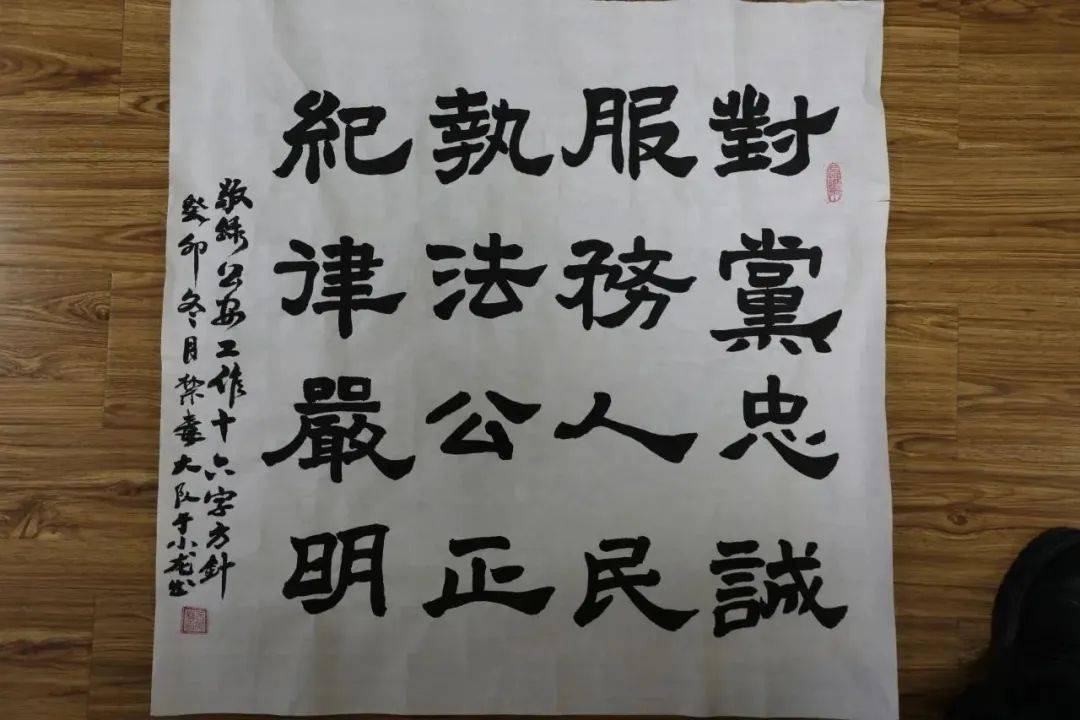 對黨忠誠
服務人民
執法公正
紀律嚴明
敬録公安工作十六字方針
癸卯冬月禁毒大队于小龙书